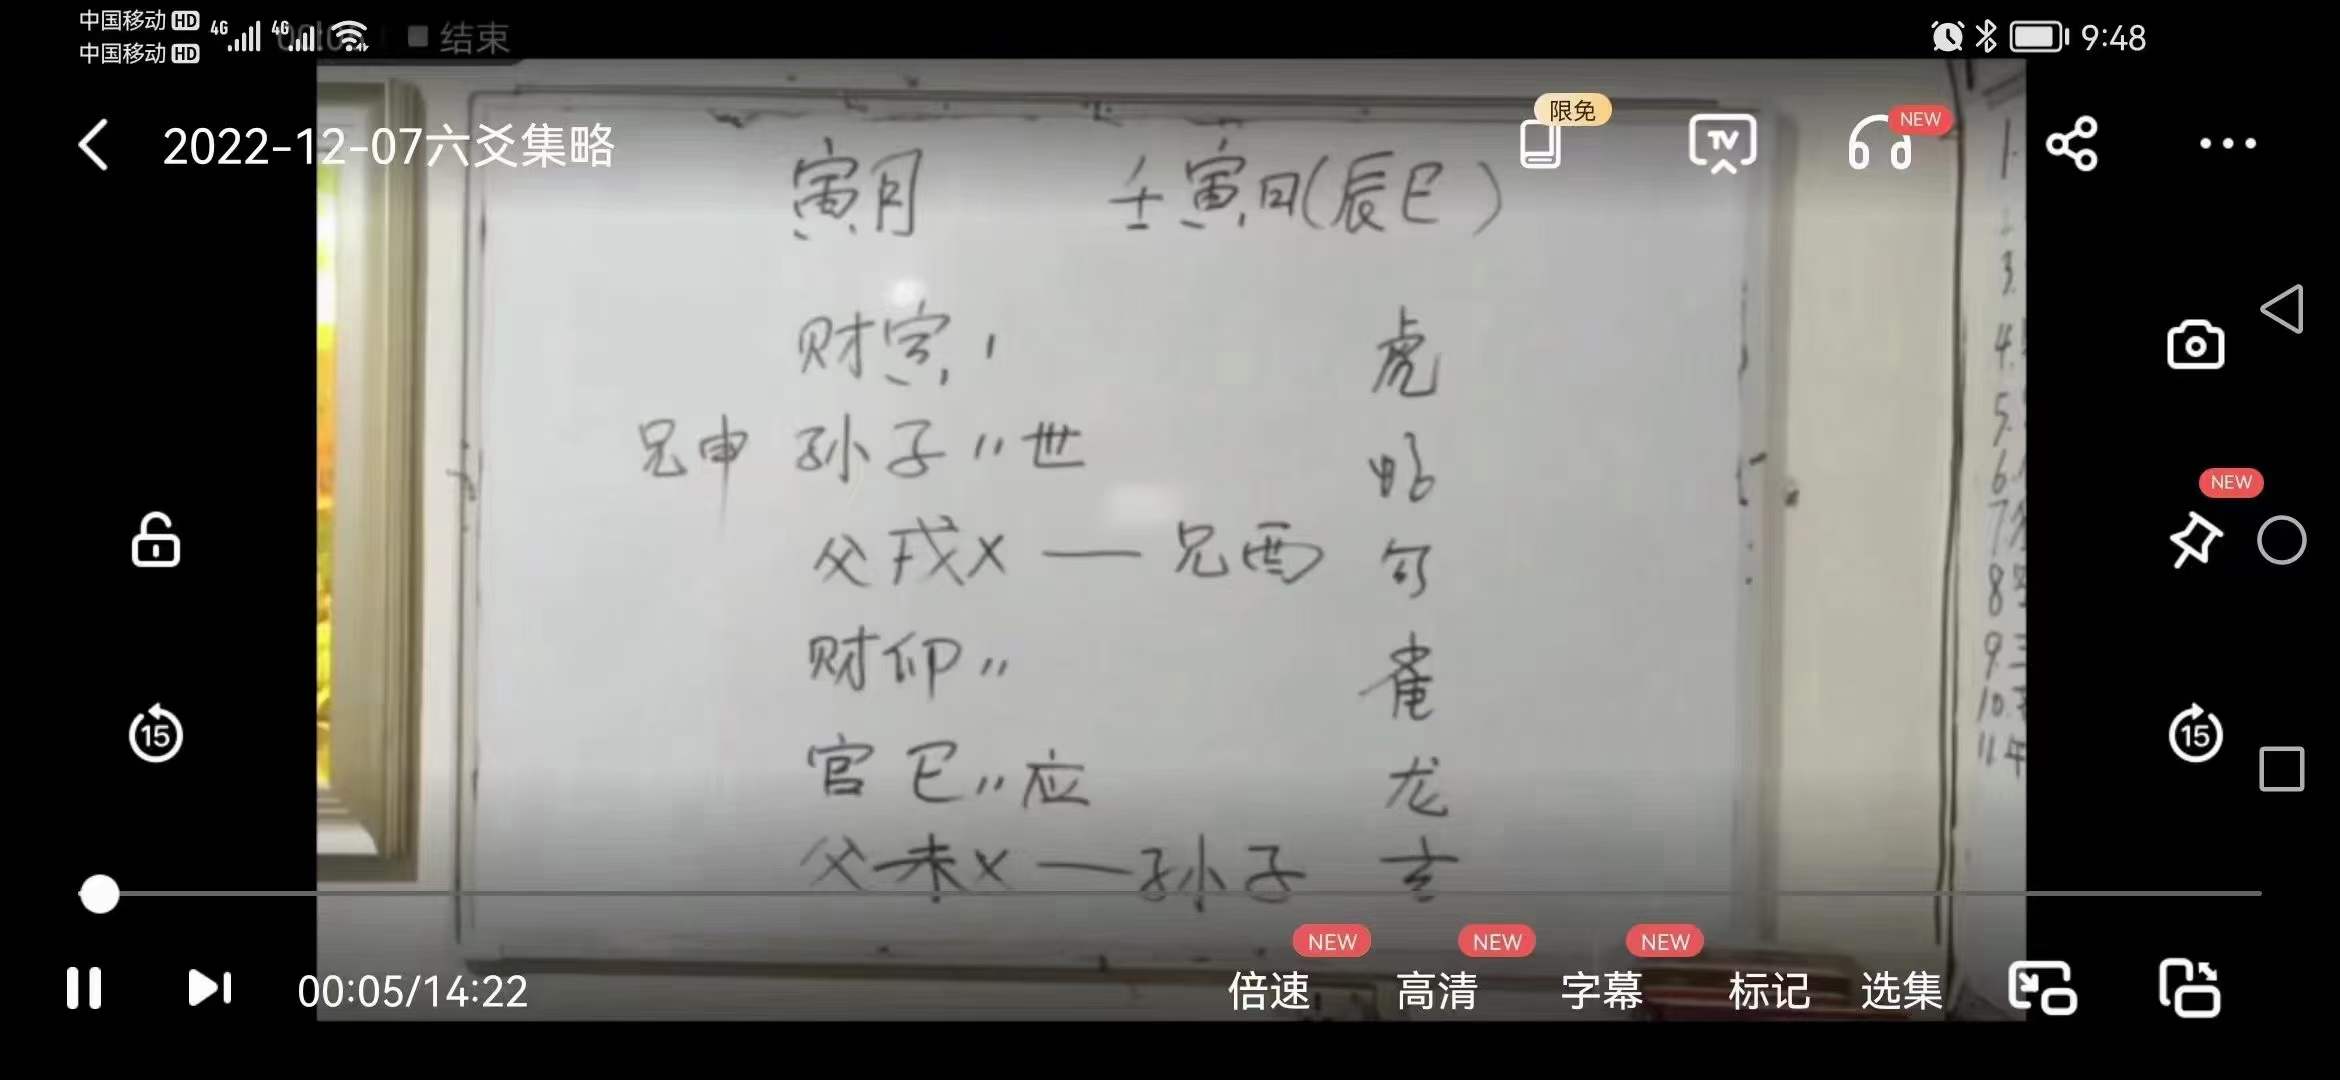 中国移动 HD 4G 4G
中国移动 HD
结束
9:48
2022-12-07六爻集略
限免
TV
NEW
寅月 壬寅日(辰巳)
财寅、 虎
兄申 孙子〃世
父戌X — 兄酉 勾
财卯〃 雀
官巳〃应 龙
父未X — 孙子 玄
1.
3.
4.
5.
6.
7
8
9.三
10.
11.年
NEW
15
15
NEW
NEW
NEW
00:05/14:22
倍速
高清
字幕
标记
选集